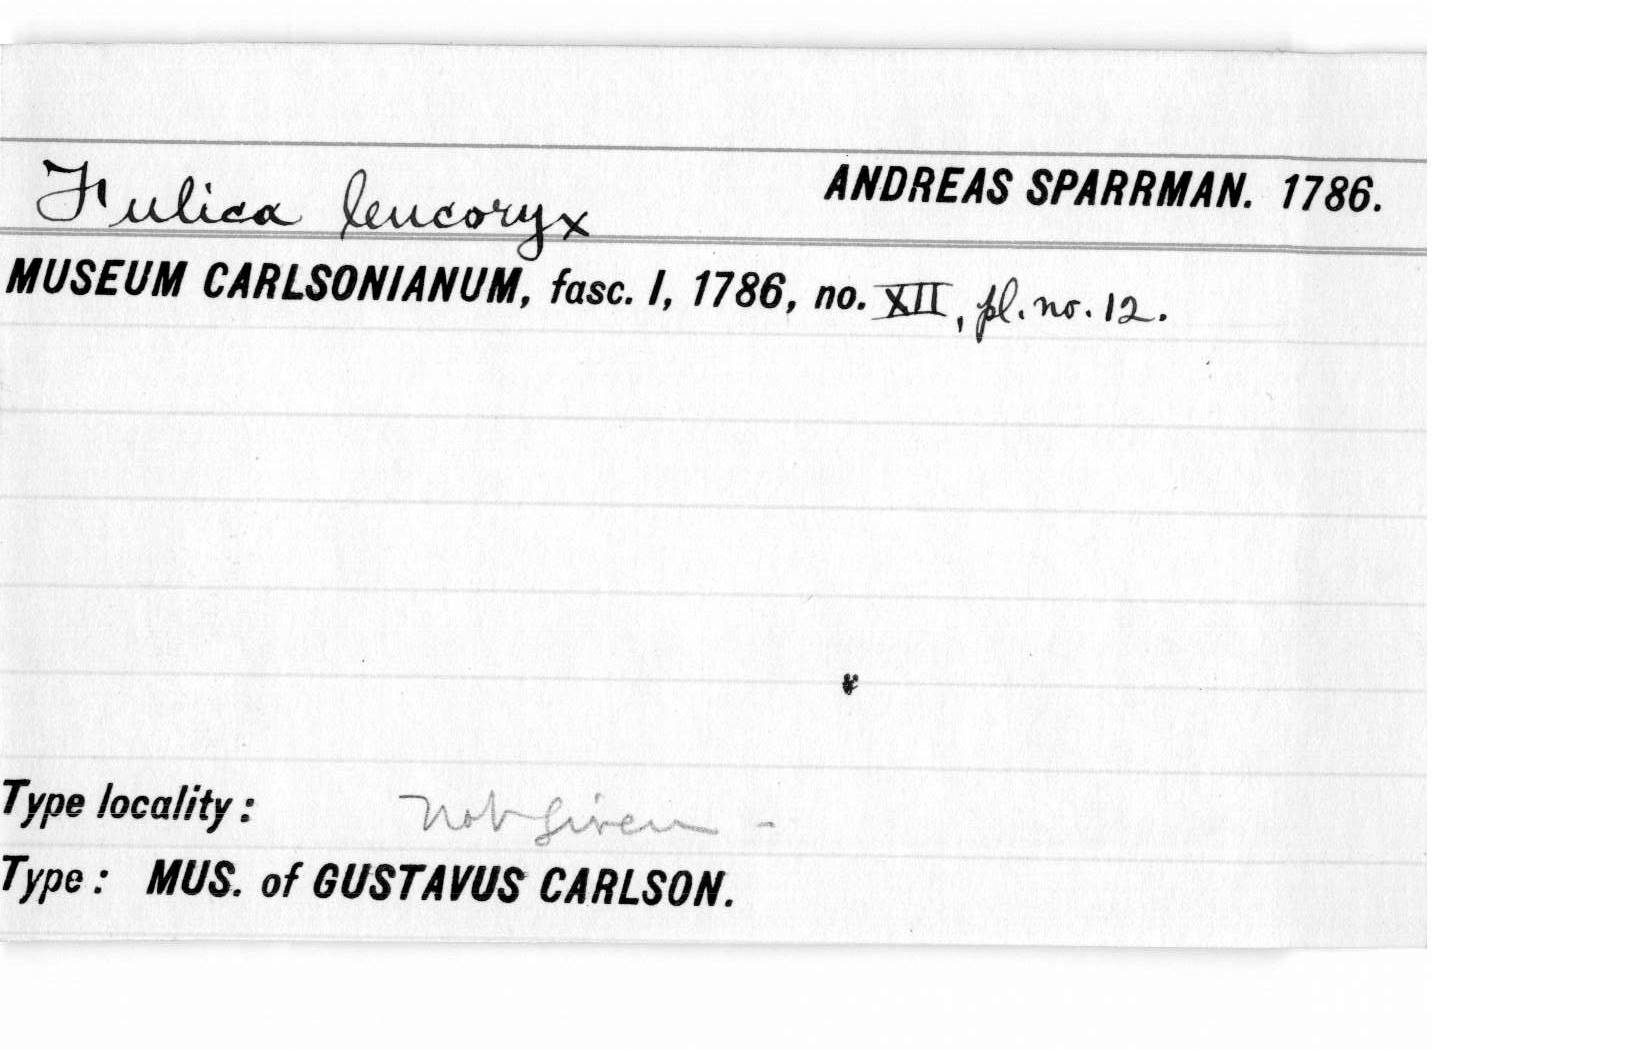 Fulica leucoryx ANDREAS SPARRMAN. 1786.
MUSEUM CARLSONIANUM, fasc. I, 1786, no. XII, pl. no. 12.
Type locality: not given -
Type: MUS. of GUSTAVUS CARLSON.